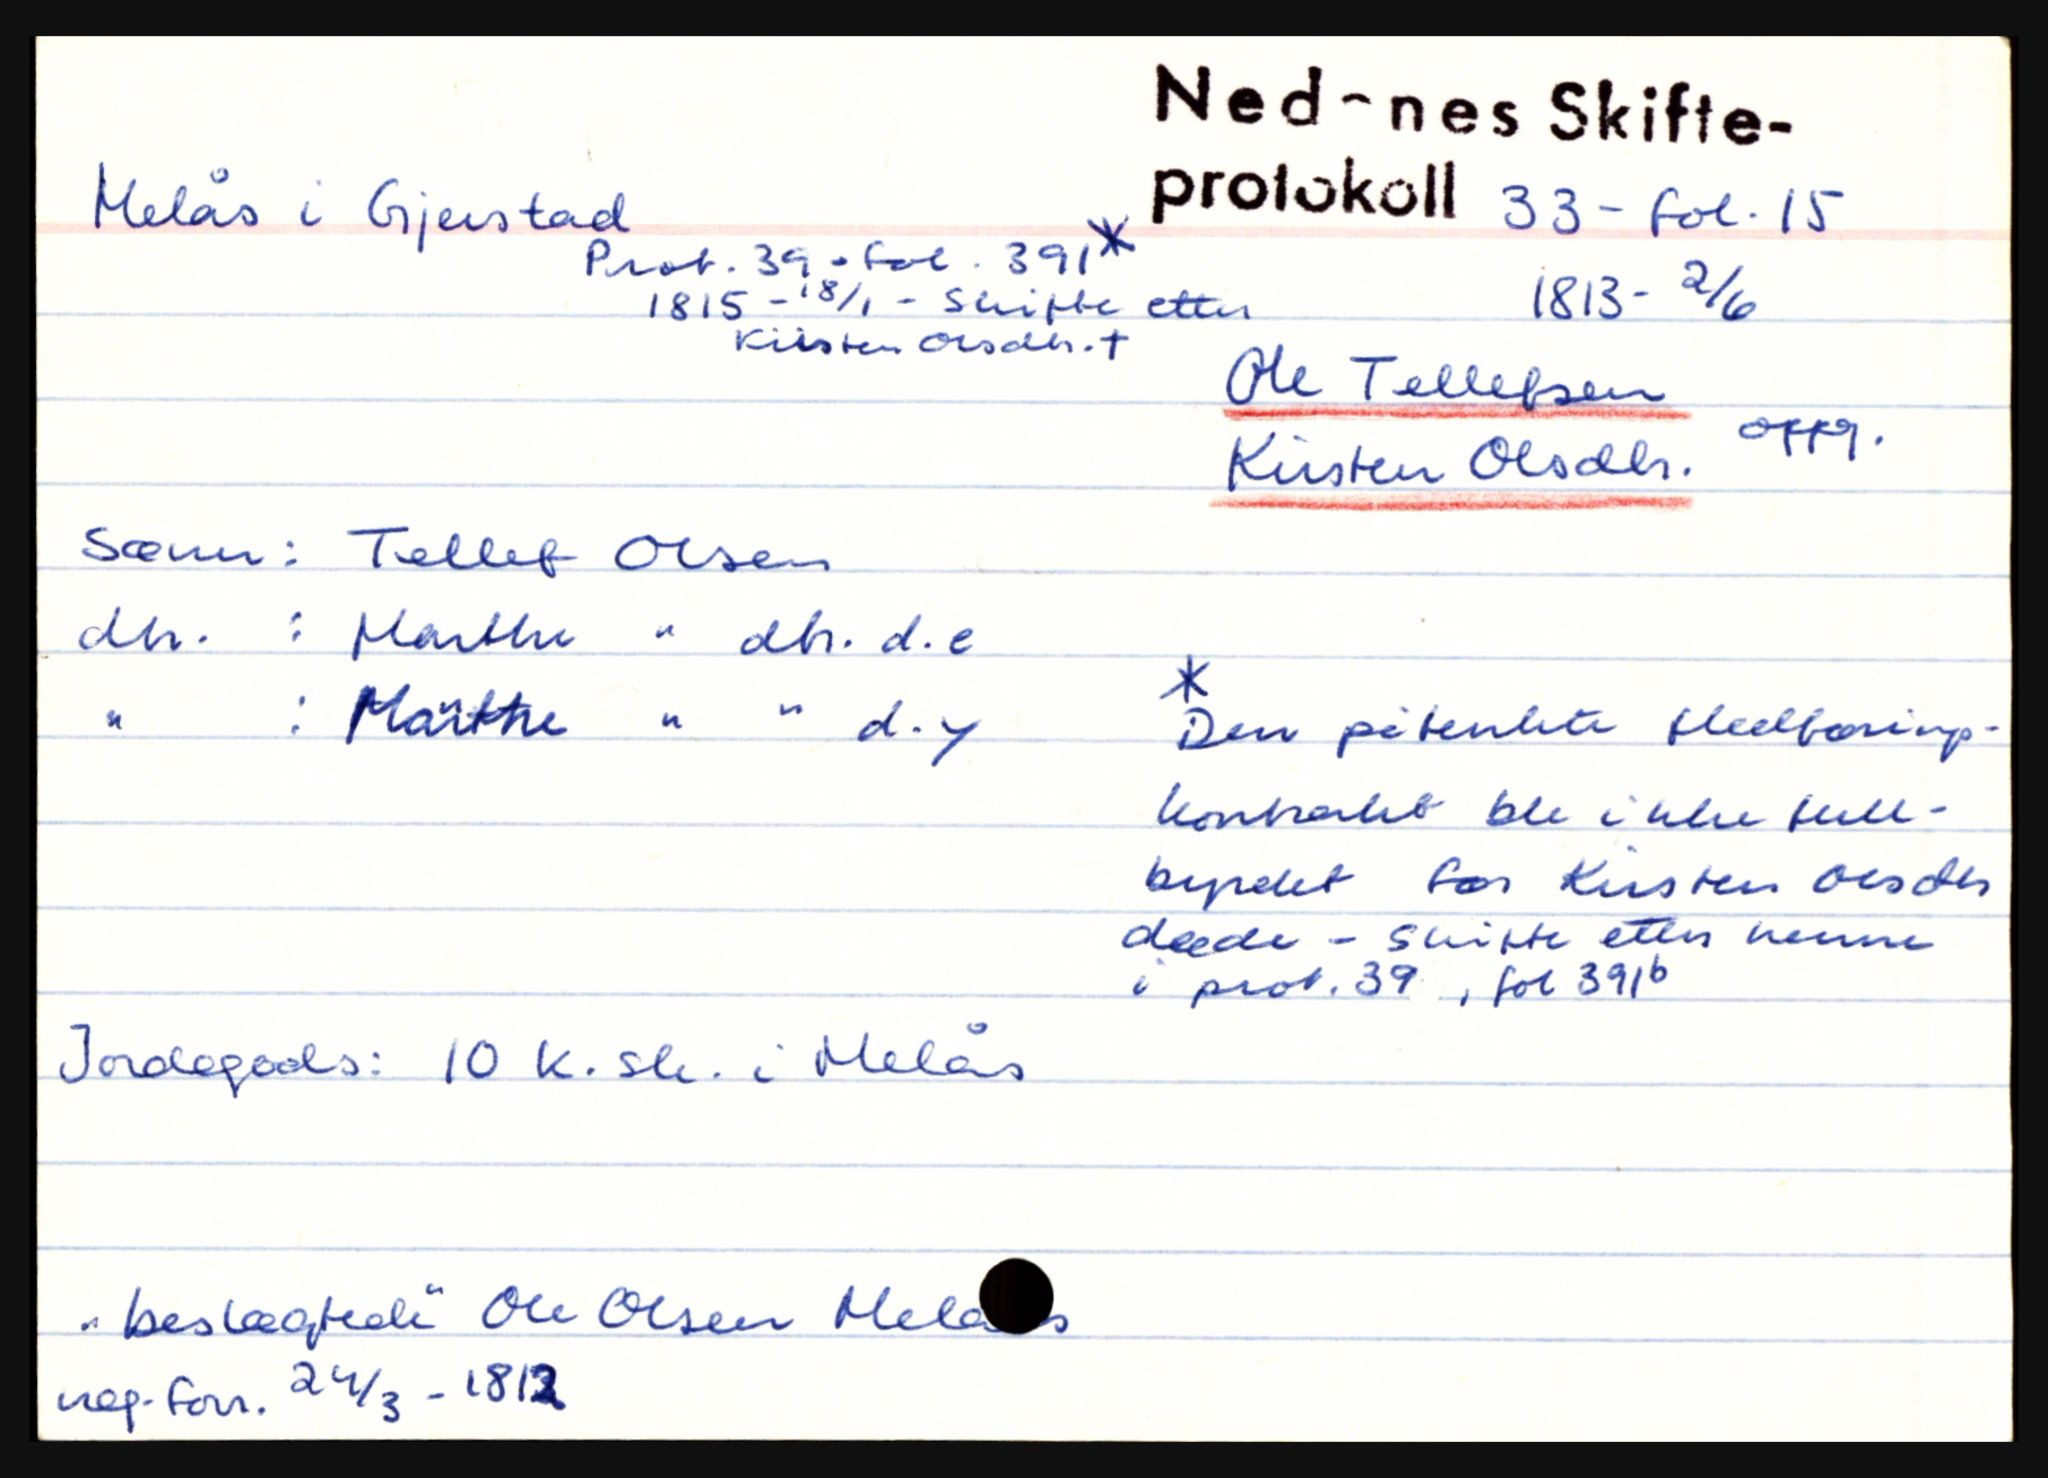 Ned-nes Skifte-
protokoll 33 - fol. 15
Melås i Gjerstad
Prot. 39 - fol. 391*
1815 - 18/1 - Skifte etter
Kirsten Olsdtr. †
1813 - 2/6
Ole Tellefsen
Kirsten Olsdtr. oppg.
Sønn: Tellef Olsen
dtr. : Marthe " dtr. d.e
" : Marthe " " d.y
*
Den påtenkte fledføring-
kontrakt ble ikke full-
byrdet før Kirsten Olsdtr
døde - skifte etter henne
i prot. 39, fol 391b
Jordegods: 10 k. sk. i Melås
"beslægtede" Ole Olsen Melås
reg. forr. 24/3 - 1812